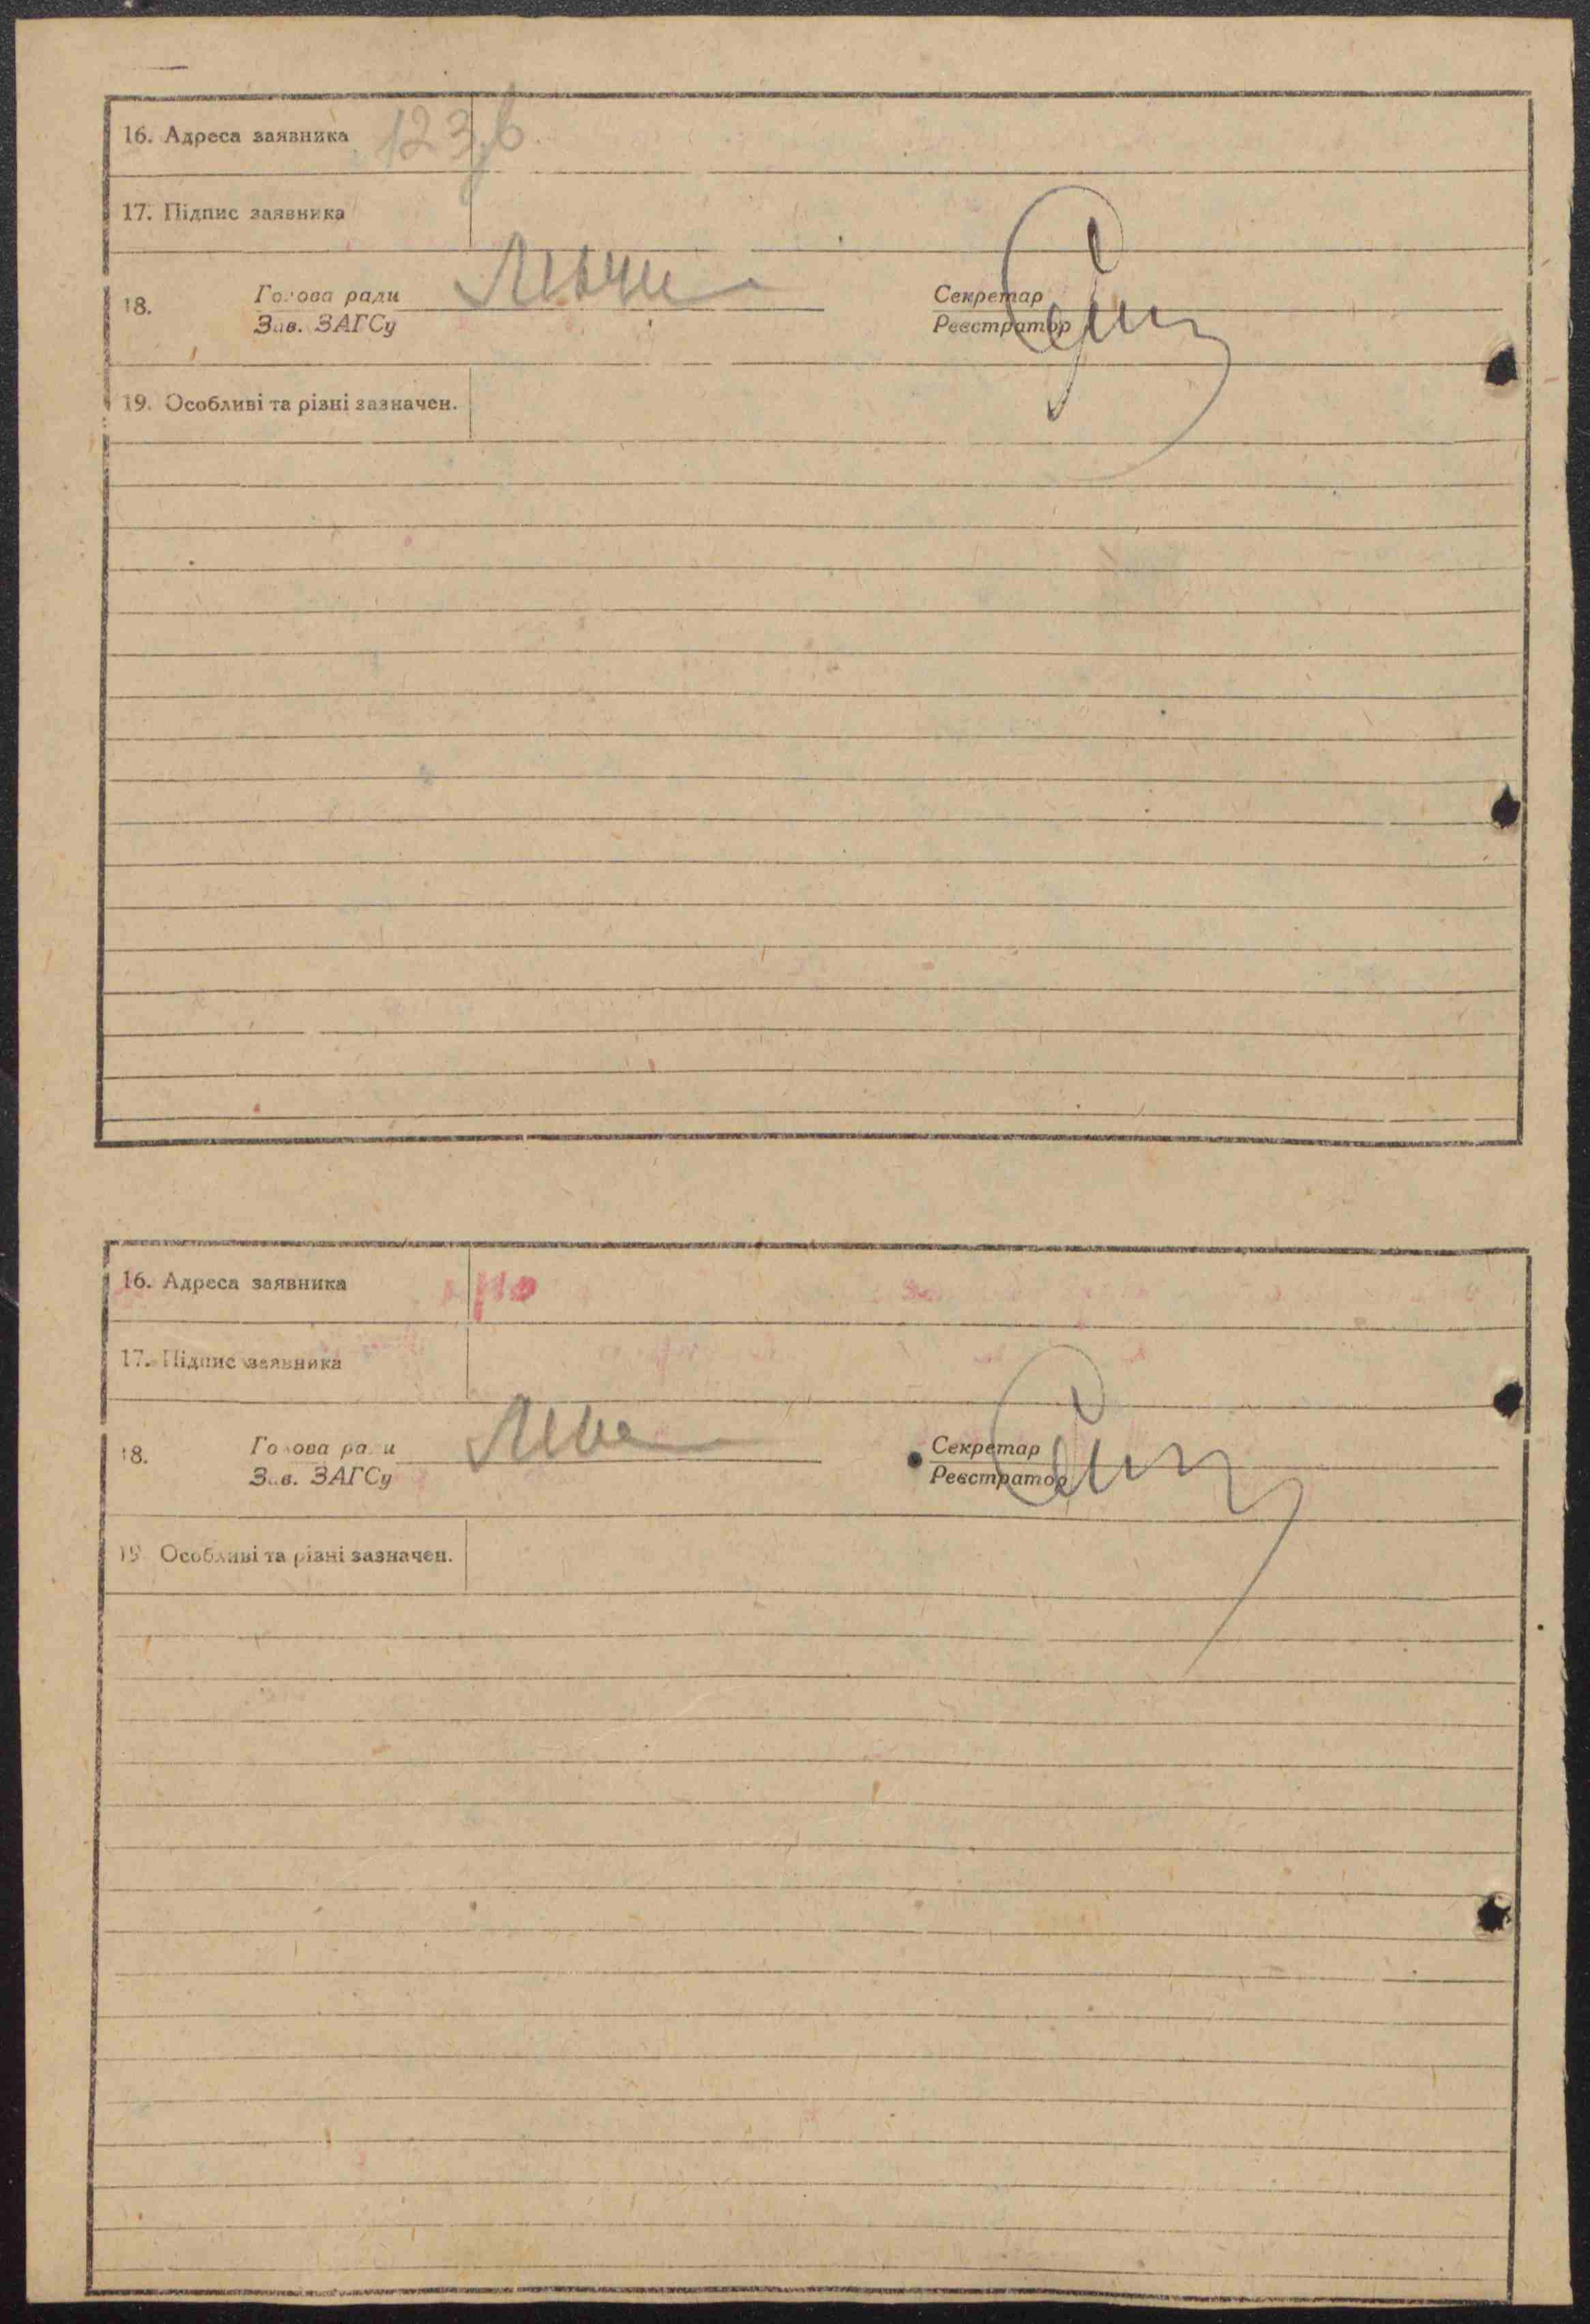 16. Адреса заявника 123
17. Підпис заявника
18. Голова ради Секретар
Зав. ЗАГСу Реєстратор
19. Особливі та різні зазначен.
16. Адреса заявника
17. Підпис заявника
18. Голова ради Секретар
Зав. ЗАГСу Реєстратор
19. Особливі та різні зазначен.